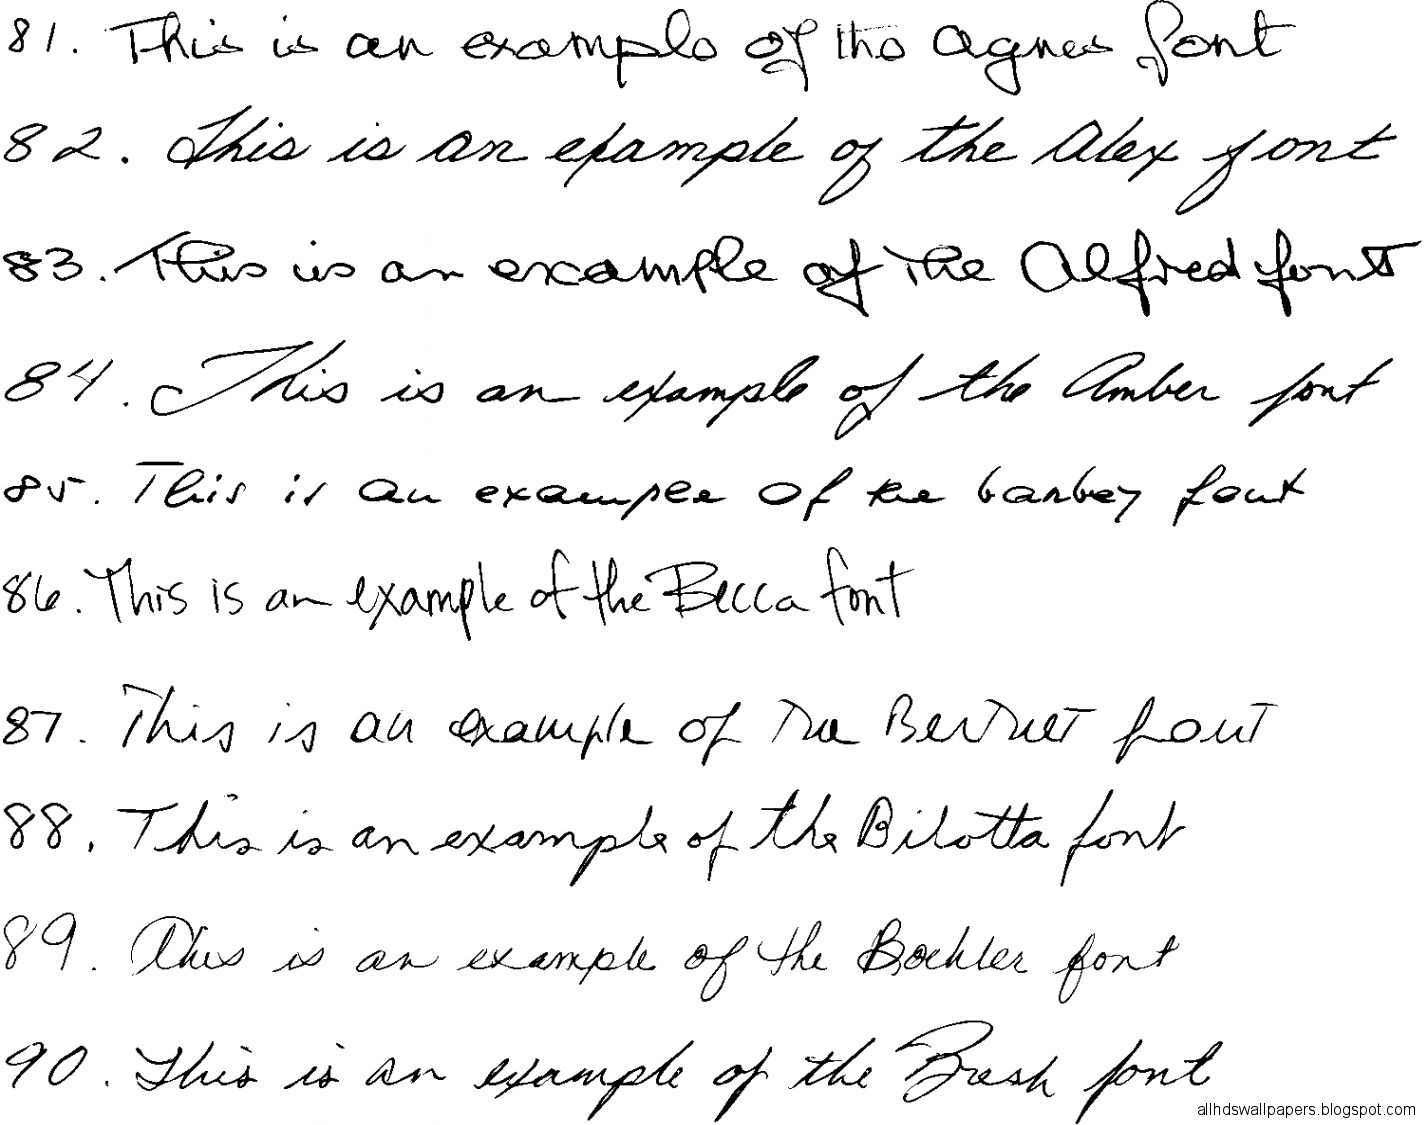 81. This is an example of the Agnes font
82. This is an example of the Alex font
83. This is an example of the Alfred font
84. This is an example of the Amber font
85. This is an example of the barbey font
86. This is an example of the Becca font
87. This is an example of the Bertret font
88. This is an example of the Bilotta font
89. This is an example of the Boehler font
90. This is an example of the Brash font
allhdswallpapers.blogspot.com